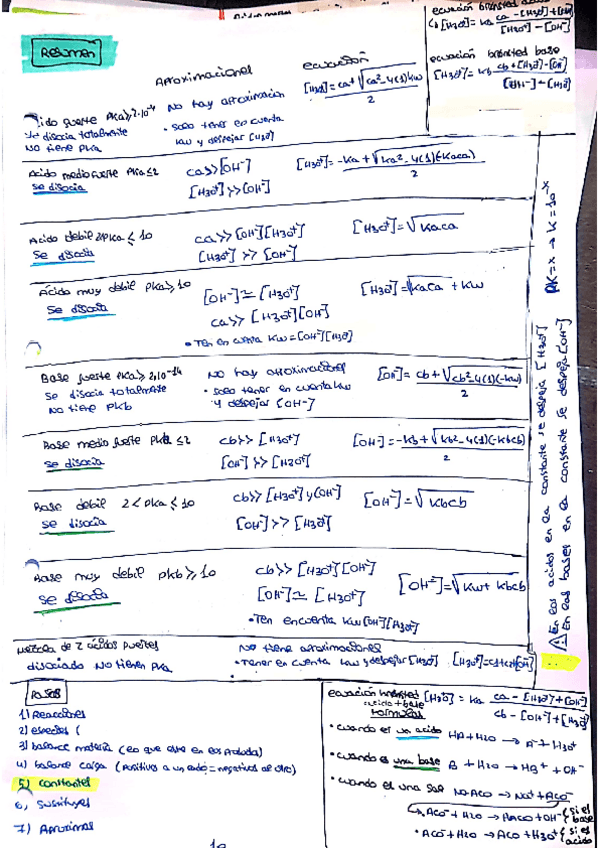 Resumen
Aproximaciones
ecuación
[H3O+] = ca + √ca²-4(1)kw / 2
ecuación brönsted
[H3O+] = ka ca - [H3O+] + [OH-] / [H3O+] - [OH-]
ecuación brönsted base
[H3O+] = kb cb + [H3O+] - [OH-] / [OH-] - [H3O+]
Acido fuerte Pka ≥ 2·10⁻⁴
Se disocia totalmente
No tiene pKa
No hay aproximación
• Solo tener en cuenta
kw y despejar [H3O+]
Acido medio fuerte Pka ≤ 2
Se disocia
ca >> [OH-]
[H3O+] >> [OH-]
[H3O+] = -ka + √ka²-4(1)(-kaca) / 2
Acido debil 2 Pka ≤ 10
Se disocia
ca >> [OH-][H3O+]
[H3O+] >> [OH-]
[H3O+] = √kaca
Ácido muy debil Pka ≥ 10
Se disocia
[OH-] ≃ [H3O+]
ca >> [H3O+][OH-]
• Ten en cuenta kw = [OH-][H3O+]
[H3O+] = √kaca + kw
Base fuerte Pka ≥ 2,10⁻¹⁴
Se disocia totalmente
No tiene pkb
No hay aproximaciones
• Solo tener en cuenta kw
y despejar [OH-]
[OH-] = cb + √cb²-4(1)(-kw) / 2
Base medio fuerte Pkb ≤ 2
Se disocia
cb >> [H3O+]
[OH-] >> [H3O+]
[OH-] = -kb + √kb²-4(1)(-kbcb) / 2
Base debil 2 < pka ≤ 10
Se disocia
cb >> [H3O+] y [OH-]
[OH-] >> [H3O+]
[OH-] = √kbcb
Base muy debil pkb ≥ 10
Se disocia
cb >> [H3O+][OH-]
[OH-] ≃ [H3O+]
• Ten encuenta kw [OH-][H3O+]
[OH-] = √kw + kbcb
Mezcla de 2 ácidos fuertes
disociado No tienen pka
No tiene aproximaciones
• Tener en cuenta kw y despejar [H3O+]
PK = x → k = 10⁻ˣ
⚠ En los acidos en la constante se despeja [H3O+]
⚠ En las bases en la constante se despeja [OH-]
Pasos
1) Reacciones
2) especies (
3) balance materia (lo que este en
4) balance carga (positivos a un lado = negativos al otro)
5) constantes
6) Sustituyes
7) Aproximas
ecuación brönsted [H3O+] = ka ca - [H3O+] + [OH-] / cb - [OH-] + [H3O+]
acido + base
Formulas
• cuando es un acido HA + H2O → A- + H3O+
• cuando es una base B + H2O → HB+ + OH-
• cuando es una Sal NaACO → Na+ + ACO-
ACO- + H2O → HACO + OH- { si es base
• ACO- + H2O → ACO + H3O+ { si es acido